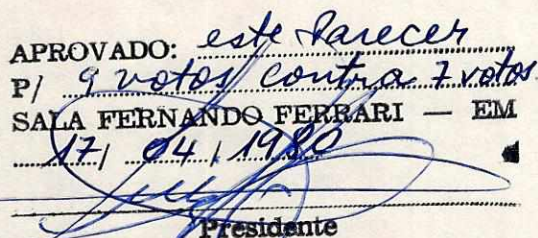 APROVADO: este Parecer
P/ 9 votos contra 7 votos
SALA FERNANDO FERRARI — EM
17/ 04, 1980
Presidente